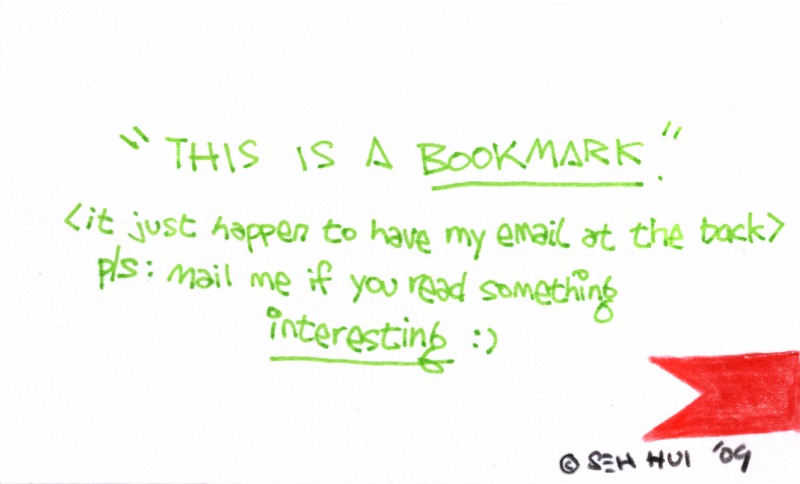 "THIS IS A BOOKMARK."
<it just happen to have my email at the back>
p/s: mail me if you read something
interesting :)
© SEH HUI '09